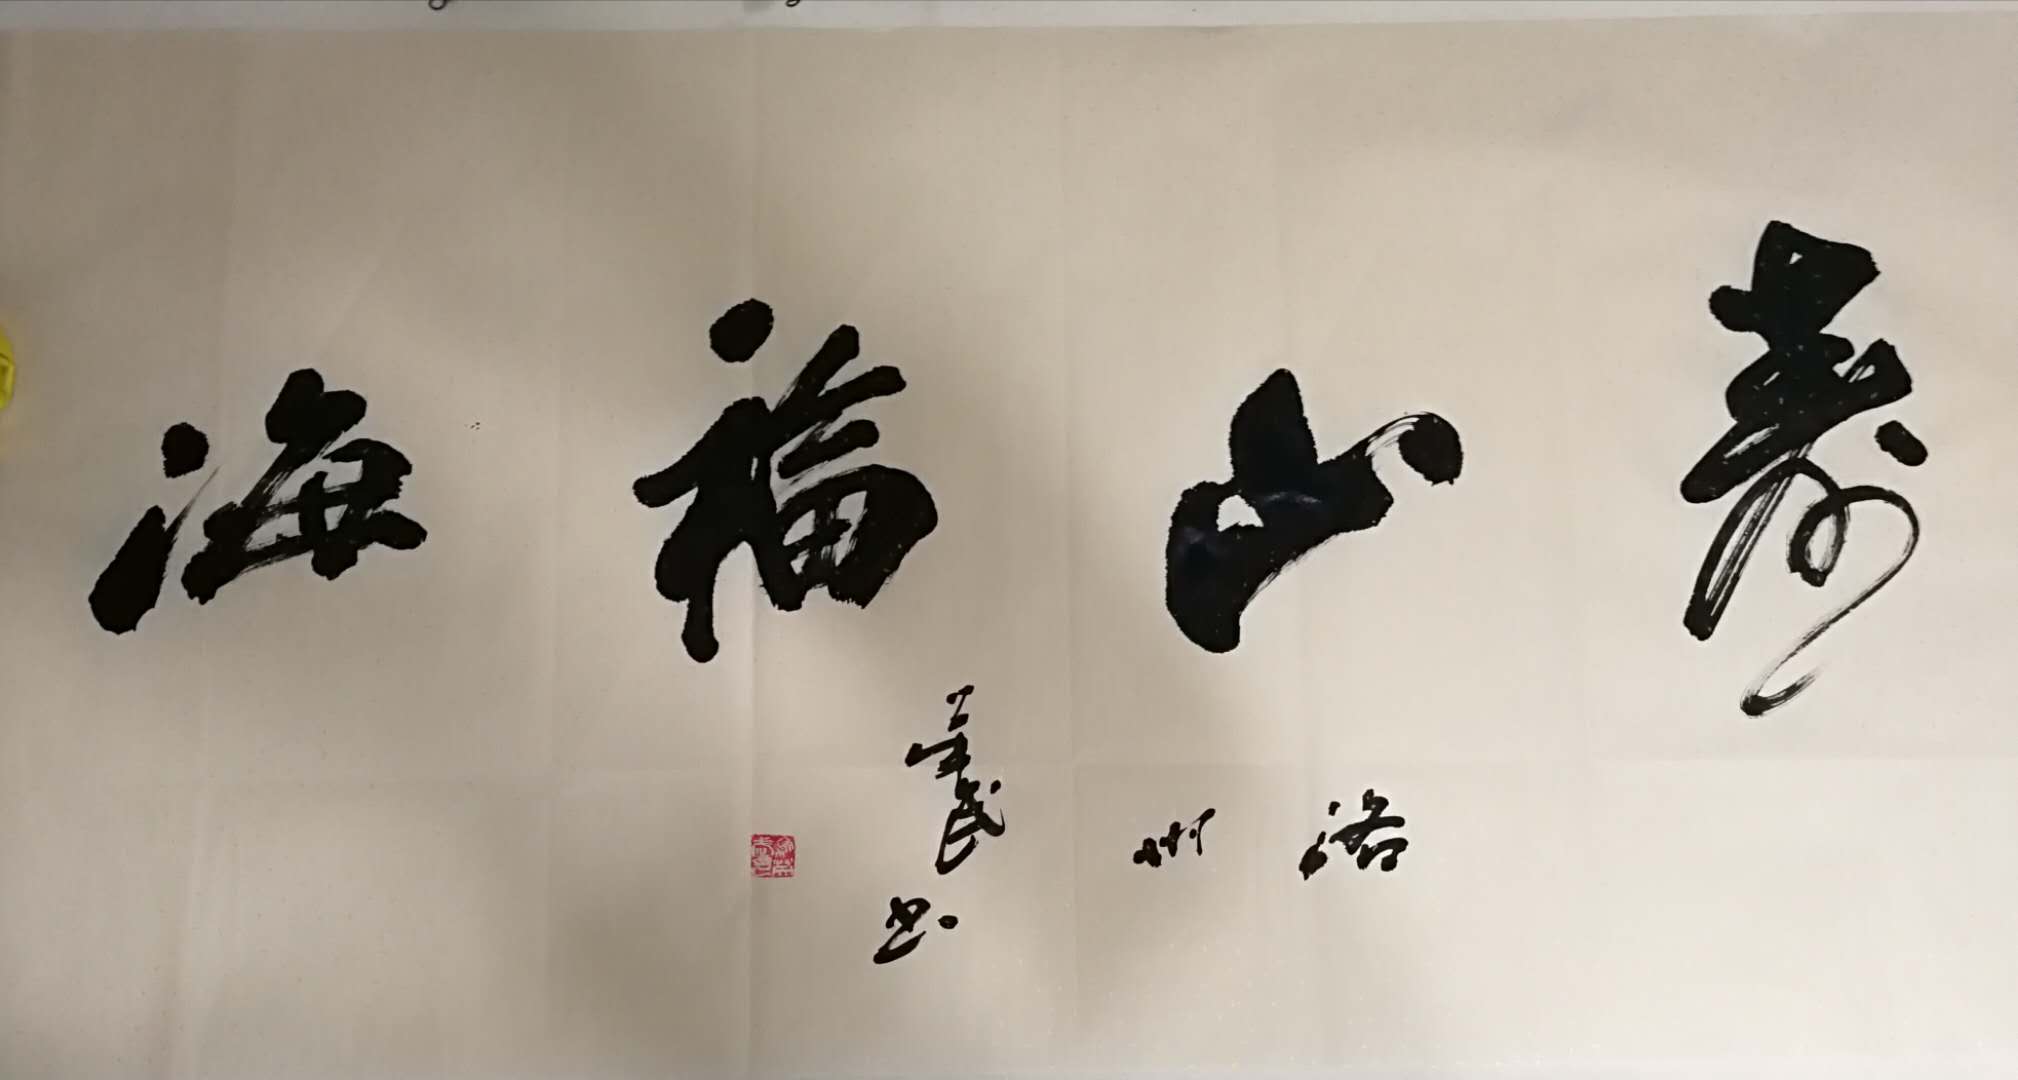 寿山福海
洛州
民书